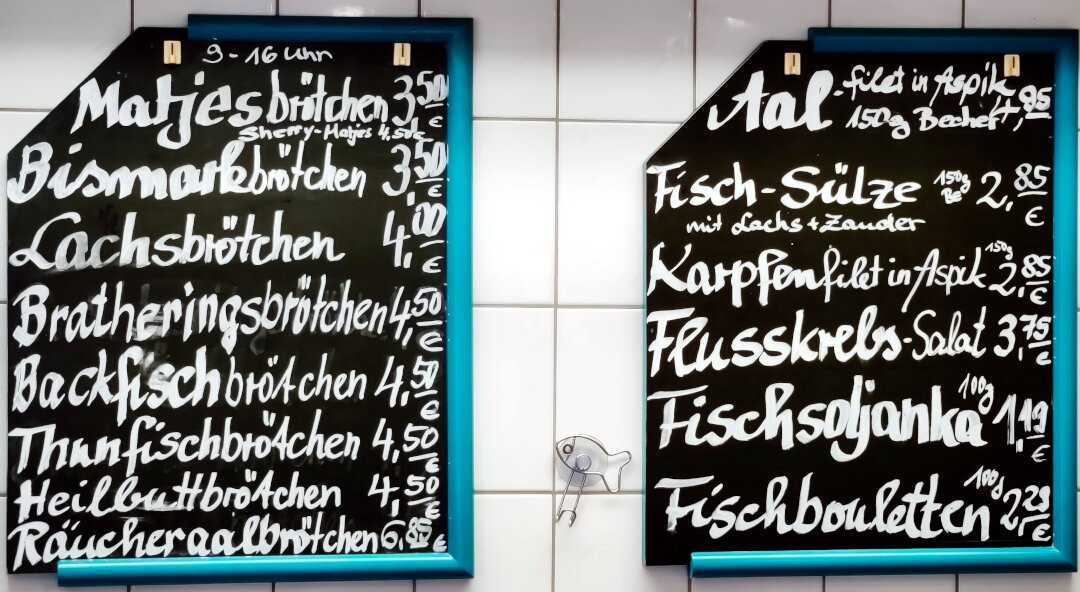 9-16 Uhr
Matjesbrötchen 3,50 €
Sherry-Matjes 4,50€
Bismarkbrötchen 3,50 €
Lachsbrötchen 4,00 €
Bratheringsbrötchen 4,50 €
Backfischbrötchen 4,50 €
Thunfischbrötchen 4,50 €
Heilbuttbrötchen 4,50 €
Räucheraalbrötchen 6, €
Aal-filet in Aspik
150g Becher ,95
Fisch-Sülze 150g Be 2,85 €
mit Lachs + Zander
Karpfenfilet in Aspik 150g 2,85 €
Flusskrebs-Salat 3,75 €
Fischsoljanka 100g 1,19 €
Fischbouletten 100g 2,29 €